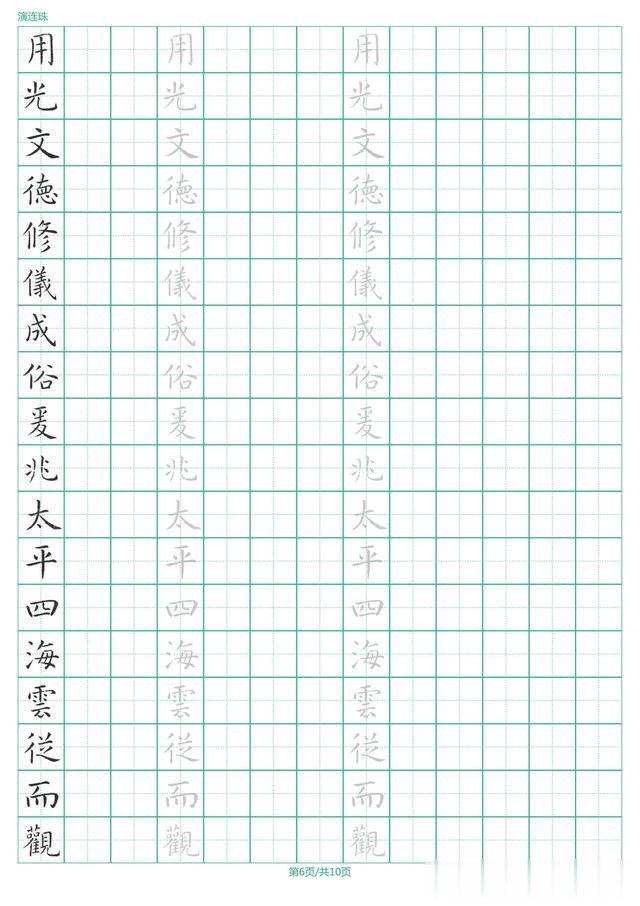 演连珠
用 用 用
光 光 光
文 文 文
德 德 德
修 修 修
儀 儀 儀
成 成 成
俗 俗 俗
爰 爰 爰
兆 兆 兆
太 太 太
平 平 平
四 四 四
海 海 海
雲 雲 雲
從 從 從
而 而 而
觀 觀 觀
第6页/共10页